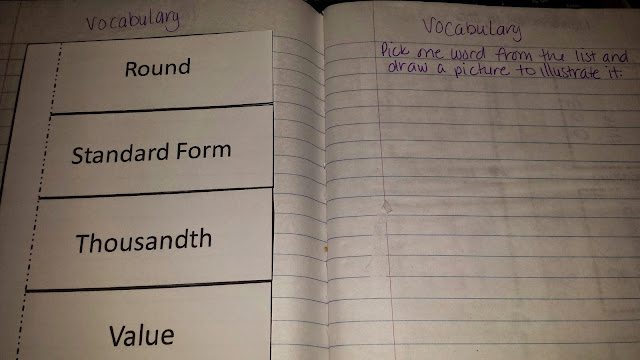 Vocabulary
Round
Standard Form
Thousandth
Value
Vocabulary
Pick one word from the list and
draw a picture to illustrate it.